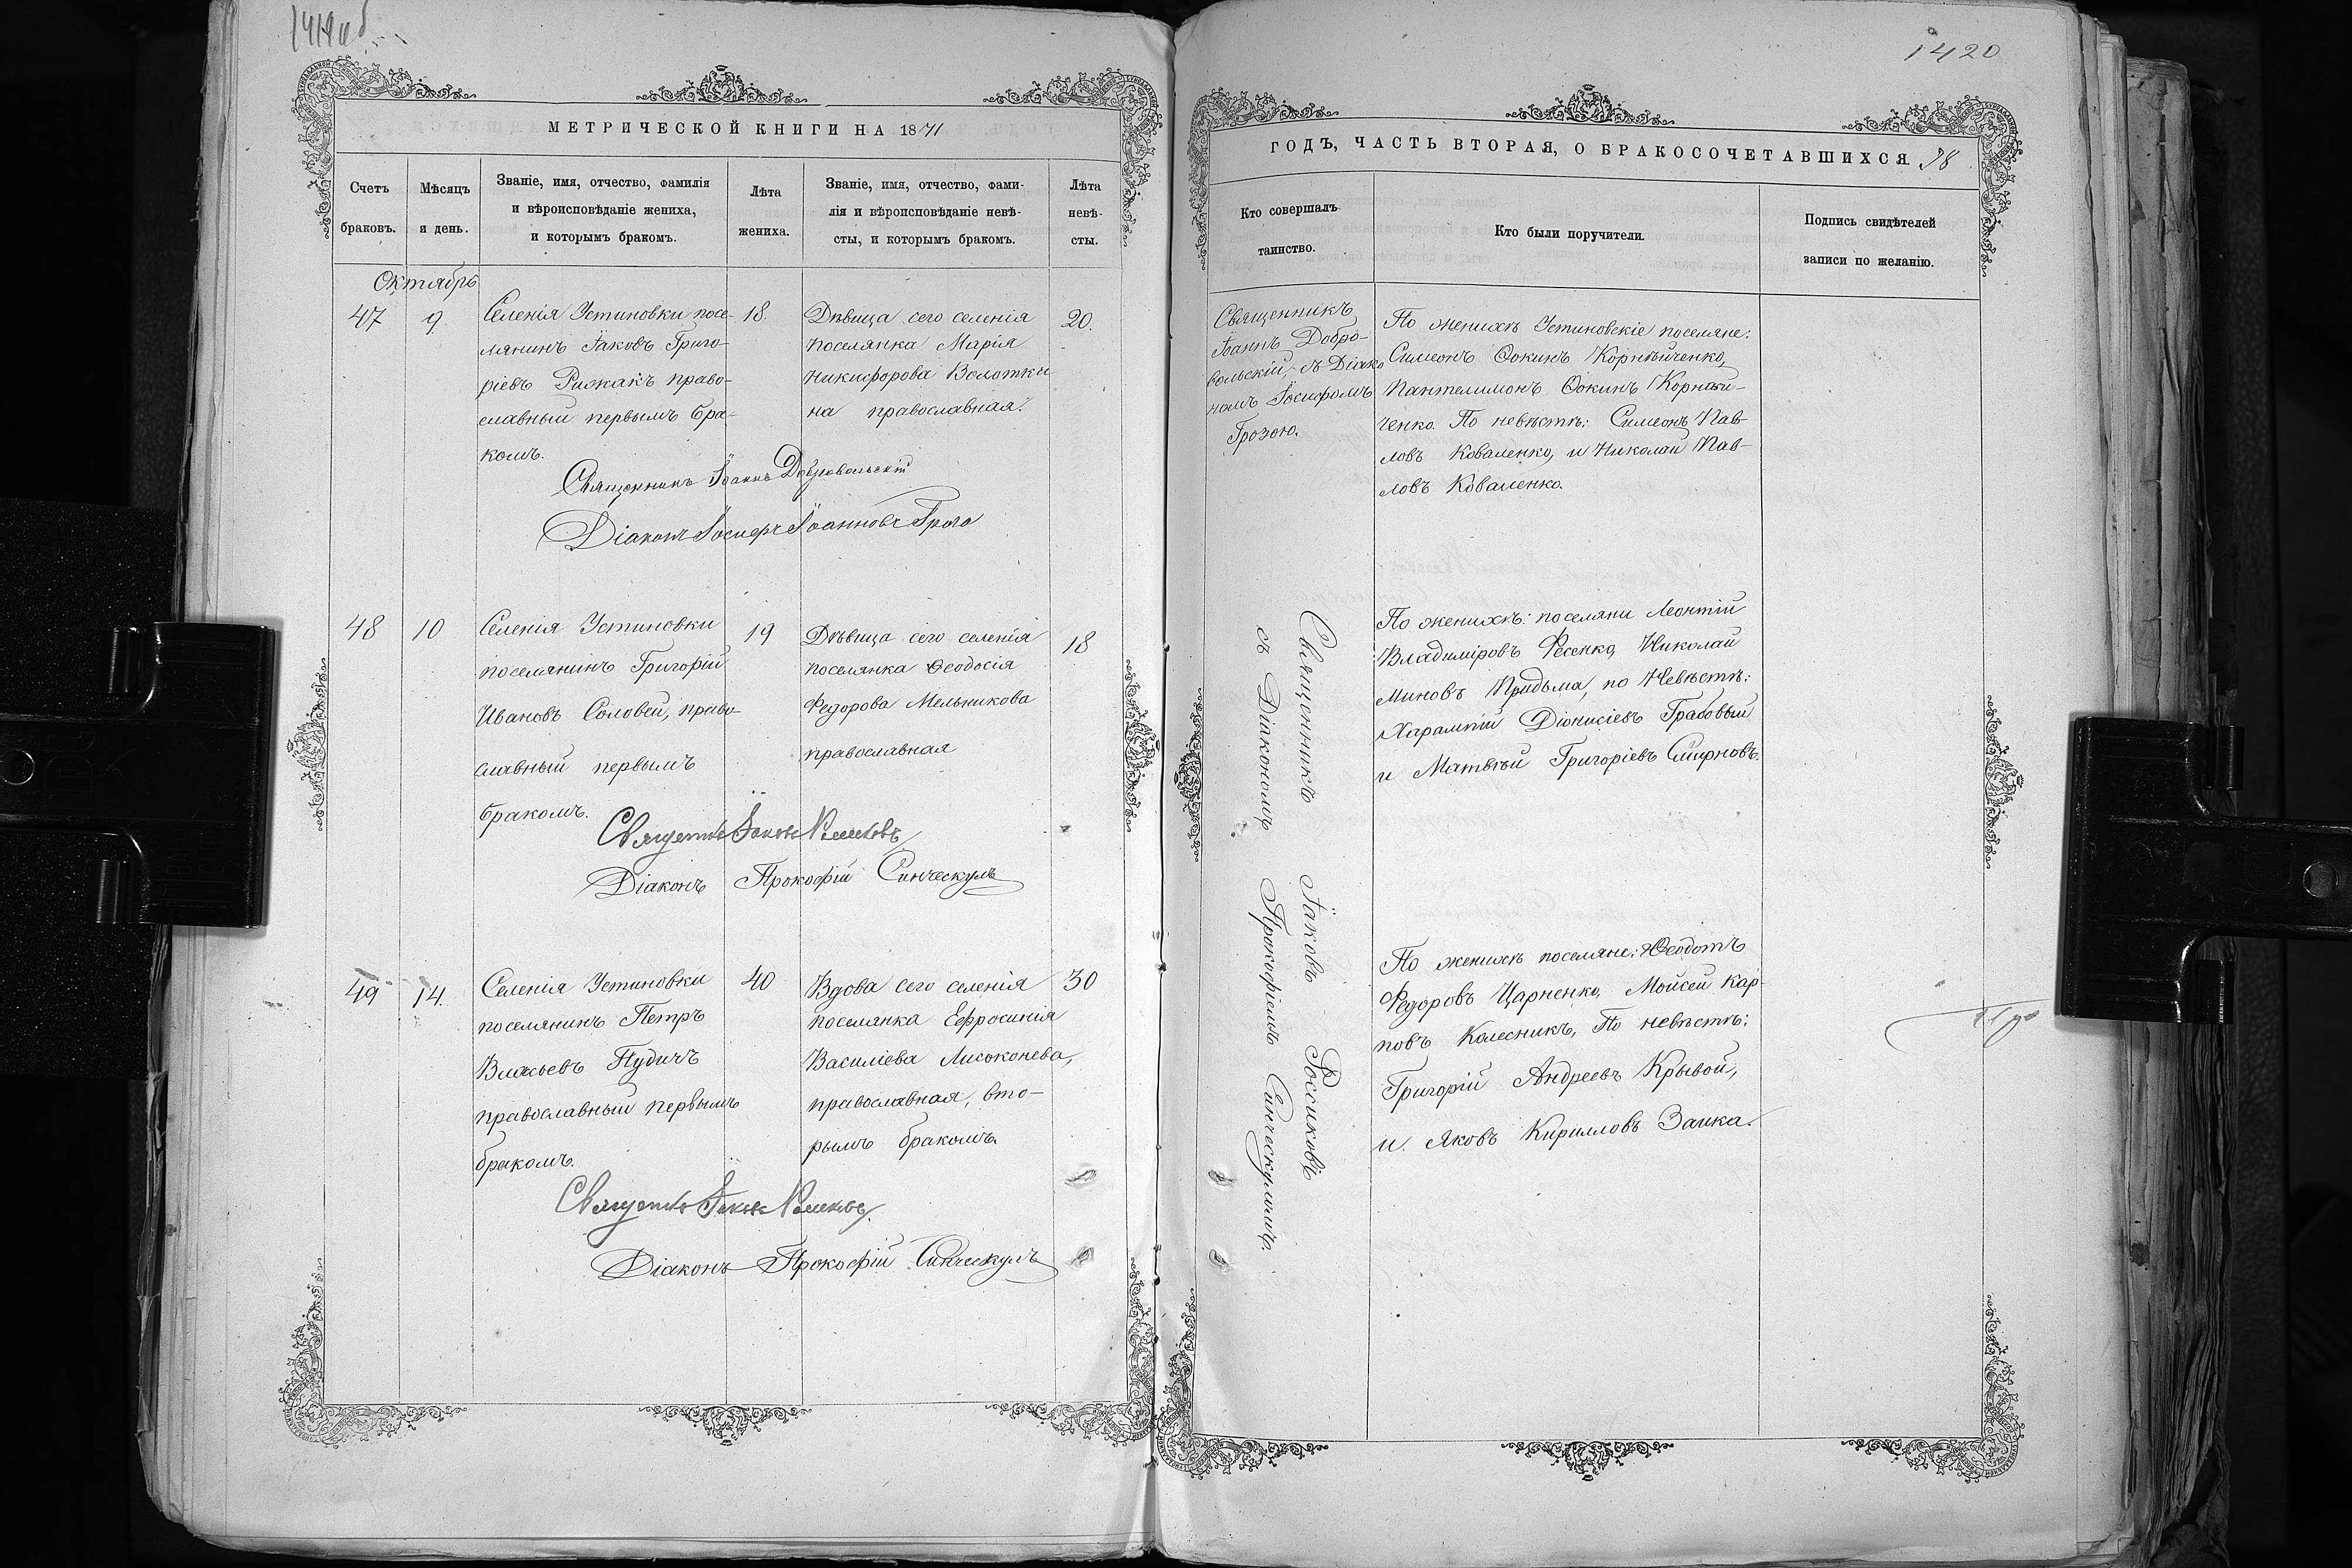 1419 об
МЕТРИЧЕСКОЙ КНИГИ НА 1871
Счетъ браковъ.
Мѣсяцъ и день.
Званіе, имя, отчество, фамилія
и вѣроисповѣданіе жениха,
и которымъ бракомъ.
Лѣта жениха.
Званіе, имя, отчество, фами-
лія и вѣроисповѣданіе невѣ-
сты, и которымъ бракомъ.
Лѣта невѣ-
сты.
Октябрь
47
9
Селенія Устиновки посе-
лянинъ Іаковъ Григо-
ріевъ Рижакъ право-
славный первымъ бра-
комъ.
18.
Дѣвица сего селенія
поселянка Марія
Никифорова Волотки
на православная.
20.
Священникъ Іоаннъ Добровольскій
Діаконъ Іосифъ Іоанновъ Гроза
48
10
Селенія Устиновки
поселянинъ Григорій
Ивановъ Соловей, право-
славный первымъ
бракомъ.
19
Дѣвица сего селенія
поселянка Ѳеодосія
Федорова Мельникова
православная
18
Священникъ Іаковъ
Діаконъ Прокофій Синческулъ
49
14.
Селенія Устиновки
поселянинъ Петръ
Власьевъ Пудичъ
православный первымъ
бракомъ.
40
Вдова сего селенія
поселянка Ефросинія
Василіева Лисоконева,
православная, вто-
рымъ бракомъ.
30
Священникъ Іаковъ
Діаконъ Прокофій Синческулъ
1420
ГОДЪ, ЧАСТЬ ВТОРАЯ, О БРАКОСОЧЕТАВШИХСЯ. 98
Кто совершалъ
таинство.
Кто были поручители.
Подпись свидѣтелей
записи по желанію.
Священникъ
Іоаннъ Добро-
вольскій, съ Діако
номъ Іосифомъ
Грозою.
По женихѣ Устиновскіе поселяне:
Симеонъ Ѳокинъ Корнѣйченко,
Пантелимонъ Ѳокинъ Корнѣй-
ченко. По невѣстѣ: Симеонъ Пав-
ловъ Коваленко, и Николай Пав-
ловъ Коваленко.
Священникъ Іаковъ Россиковъ
съ Діакономъ Прокофіемъ Синческуломъ.
По женихѣ: поселяни Леонтій
Владиміровъ Фесенко, Николай
Миновъ Придьма, по Невѣстѣ:
Харампій Діонисіевъ Грабовый
и Матвѣй Григоріевъ Смирновъ.
По женихѣ поселяне: Ѳеодотъ
Федоровъ Царненко, Мойсей Кар-
повъ Колесникъ, По невѣстѣ:
Григорій Андреевъ Крывой,
и. Яковъ Кирилловъ Заика.